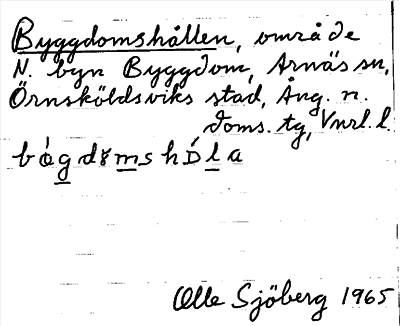 Byggdomshållen, område
N. byn Byggdom, Arnäs sn,
Örnsköldsviks stad, Ång. n.
doms. tg, Vnrl. l.
Olle Sjöberg 1965